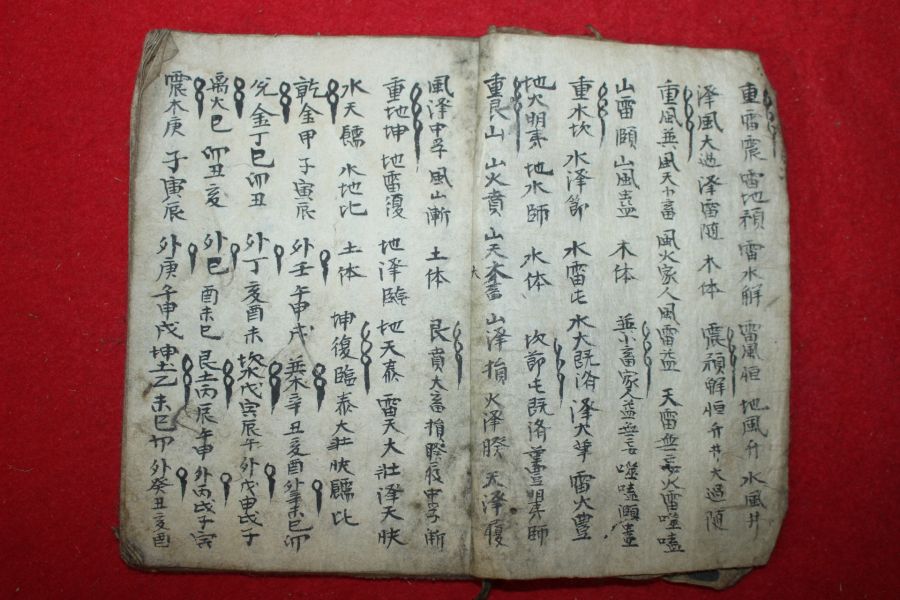 重雷震 雷地預 雷水解 雷風恒 地風升 水風井
泽風大過 泽雷随 木体 震預解恒升井大過随
重風巽 風天小畜 風火家人 風雷益 天雷無妄 火雷噬嗑
山雷頤 山風蠱 木体 巽小畜家人益無妄噬嗑頤蠱
重水坎 水泽節 水雷屯 水火既済 泽火革 雷火豊
地火明夷 地水師 水体 坎節屯既済革豊明夷師
重艮山 山火賁 山天大畜 山泽損 火泽睽 天泽履
風泽中孚 風山漸 土体 艮賁大畜損睽履中孚漸
重地坤 地雷復 地泽臨 地天泰 雷天大壮 泽天夬
水天需 水地比 土体 坤復臨泰大壮夬需比
乾金甲子寅辰 外壬午申戌 巽木辛丑亥酉 外辛未巳卯
兌金丁巳卯丑 外丁亥酉未 坎水戊寅辰午 外戊申戌子
离火己卯丑亥 外己酉未巳 艮土丙辰午申 外丙戌子寅
震木庚子寅辰 外庚午申戌 坤土乙未巳卯 外癸丑亥酉